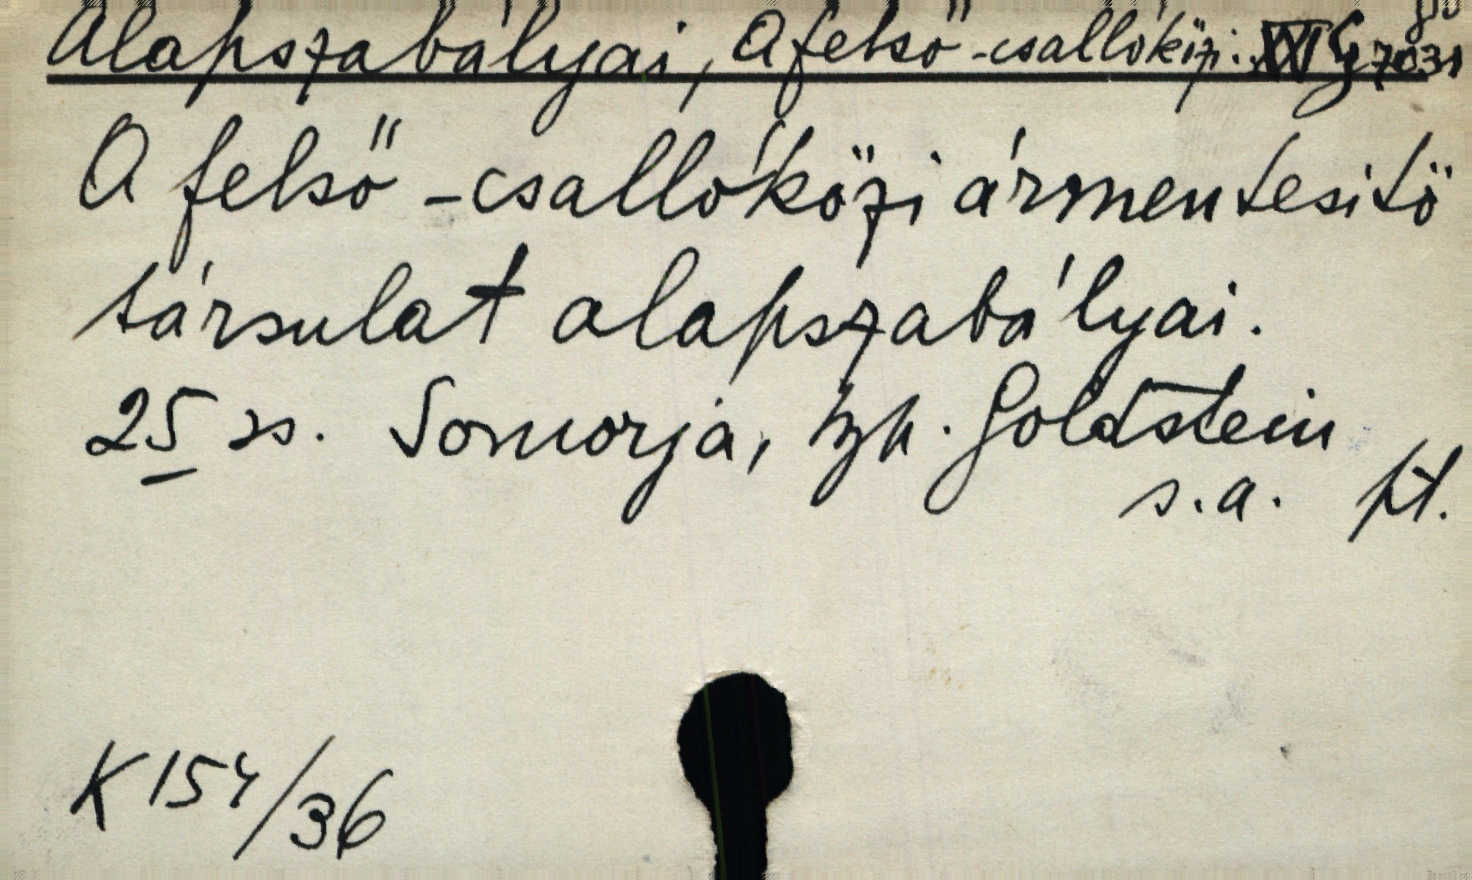 Alapszabályai, A felső-csallóközi. XXI G 7031
A felső-csallóközi ármentesitö
társulat alapszabályai.
25 ss. Somorja, Goldstein
s.a. pt.
K 154/36